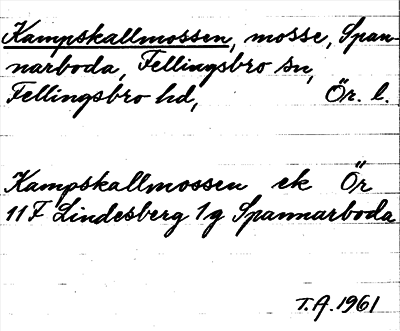 Kampskallmossen, mosse, Span-
narboda, Fellingsbro sn,
Fellingsbro hd, Ör. l.
Kampskallmossen ek Ör
11F Lindesberg 1g Spannarboda
T.A. 1961